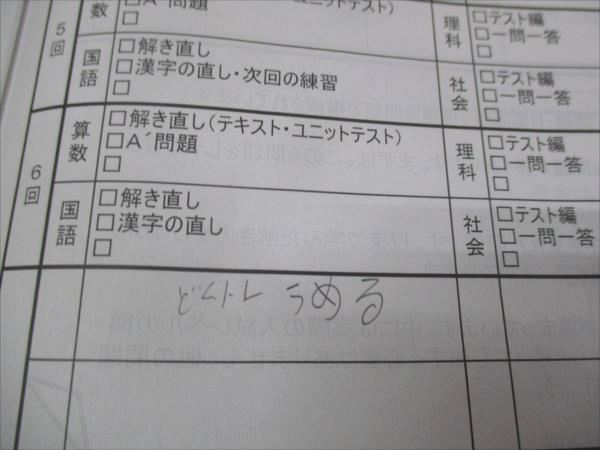 5回
算数
□A´問題
□
理科
□テスト編
□一問一答
□
国語
□解き直し
□漢字の直し・次回の練習
□
社会
□テスト編
□一問一答
□
6回
算数
□解き直し(テキスト・ユニットテスト)
□A´問題
□
理科
□テスト編
□一問一答
□
国語
□解き直し
□漢字の直し
□
社会
□テスト編
□一問一答
□
うめる